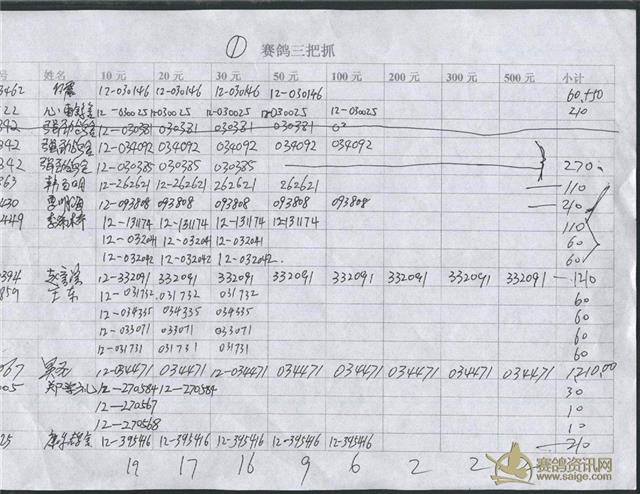 ① 赛鸽三把抓
号 姓名 10元 20元 30元 50元 100元 200元 300元 500元 小计
3462 12-030146 12-030146 12-030146 12-030146 60+50
22 12-030025 12-030025 12-030025 12-030025 12-030025 210
342 12-030381 030381 030381 030381
342 12-034092 034092 034092 034092 034092
342 12-030385 030385 030385 270
363 12-262621 12-262621 262621 262621 110
430 12-093808 093808 093808 093808 093808 210
4449 12-131174 12-131174 12-131174 12-131174 110
12-032041 12-032041 12-032041 60
12-032042 12-032042 12-032042 60
0394 12-332091 332091 332091 332091 332091 332091 332091 332091 1210
859 王东 12-031732 031732 031732 60
12-034335 034335 034335 60
12-033071 033071 033071 60
12-031731 031731 031731 60
067 12-034471 034471 12-034471 034471 034471 034471 034471 034471 1210.00
005 12-270584 12-270584 30
12-270567 10
12-270568 10
25 12-395416 12-395416 12-395416 12-395416 12-395416 210
19 17 16 9 6 2 2
赛鸽资讯网
www.saige.com